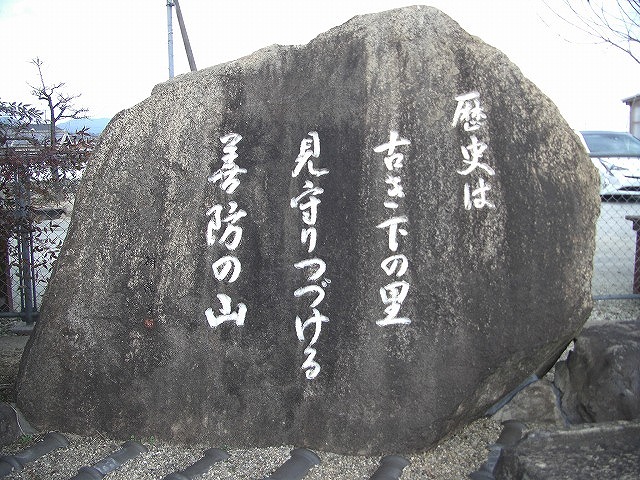 歴史は
古き下の里
見守りつづける
善防の山